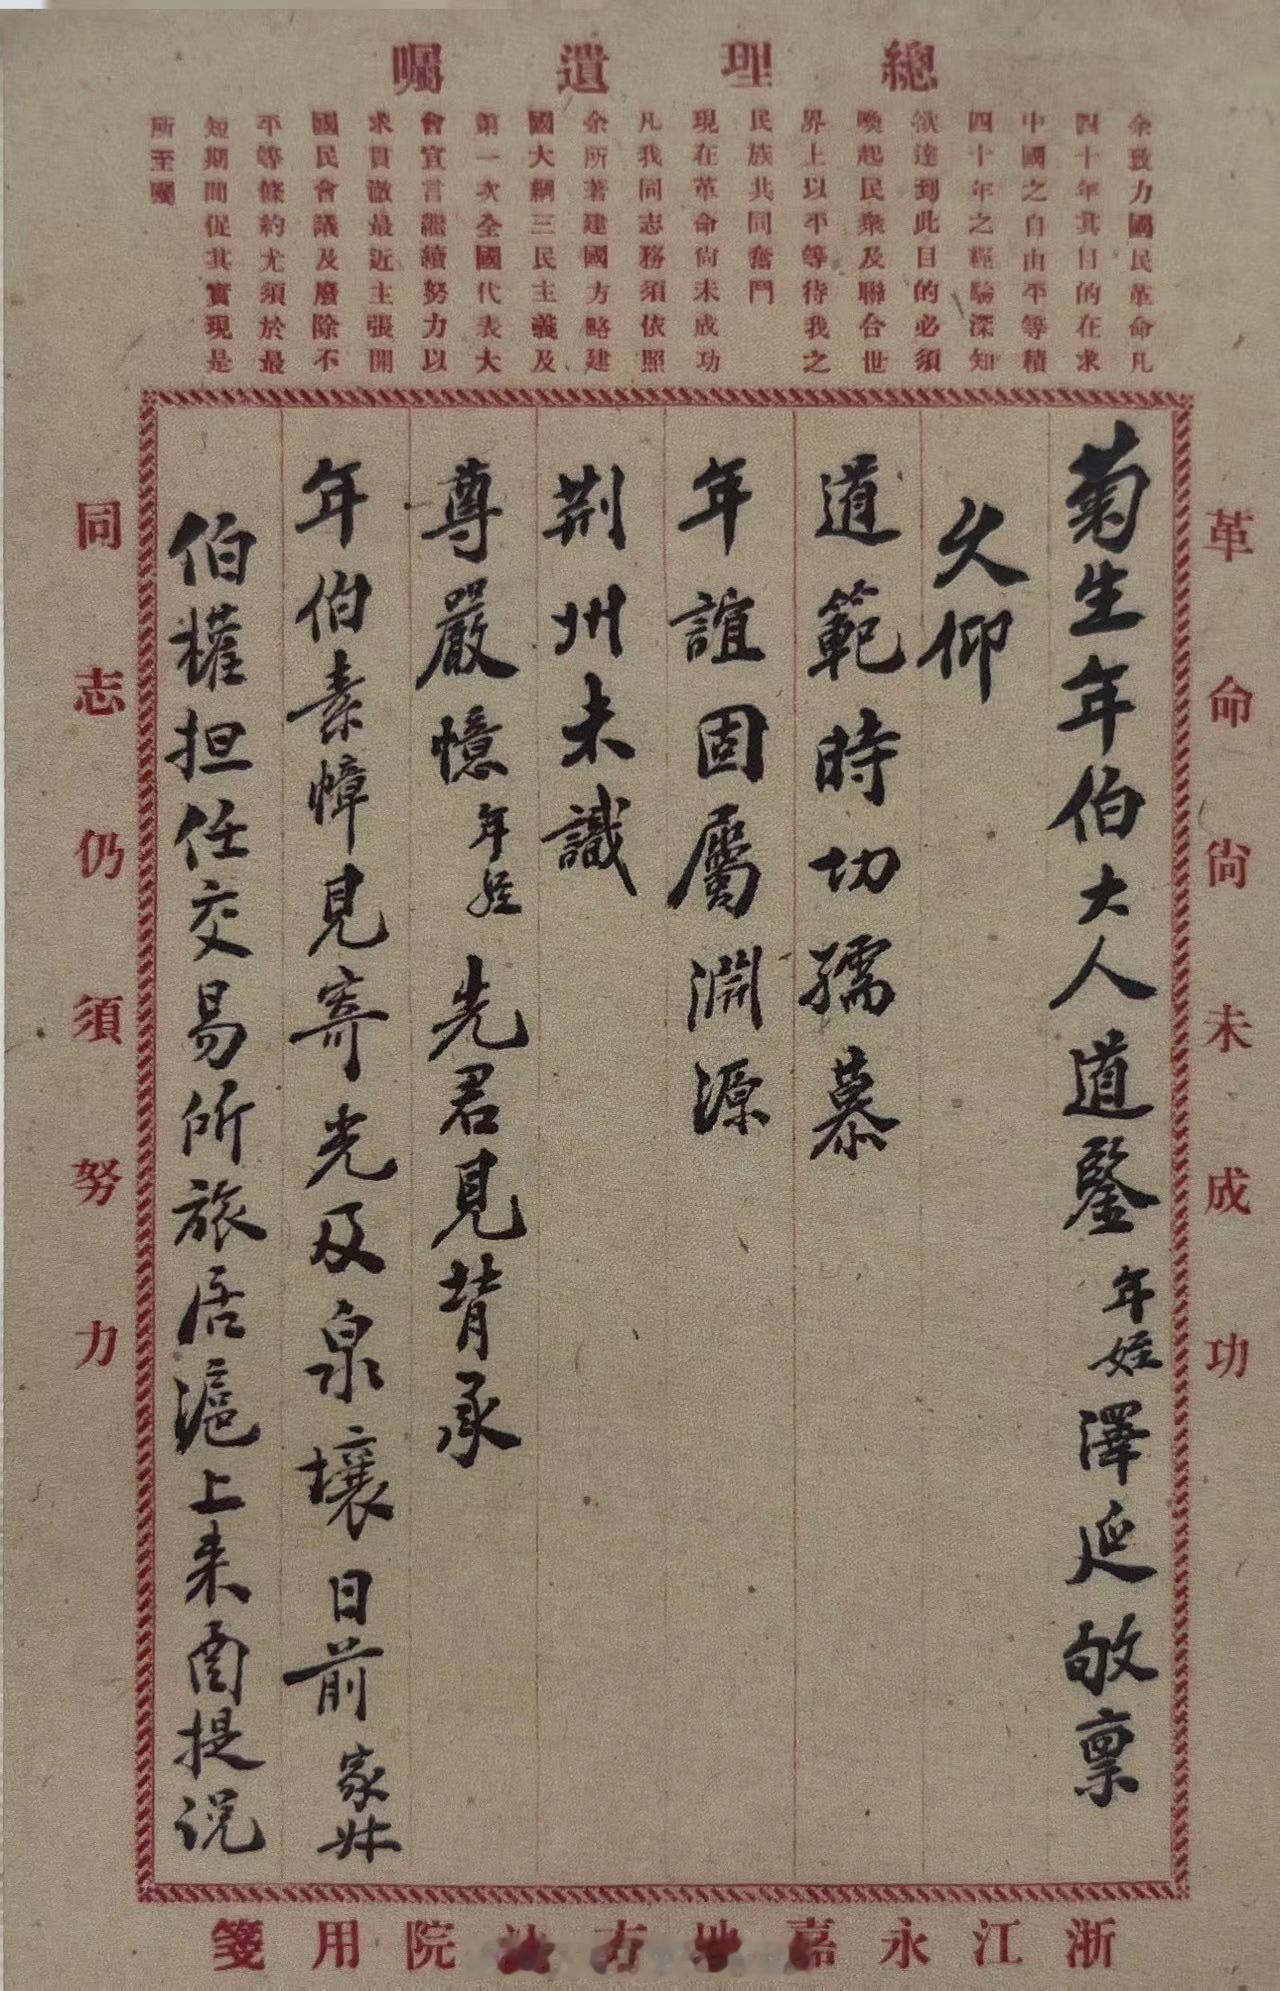 總理遺囑
余致力國民革命凡
四十年其目的在求
中國之自由平等積
四十年之經驗深知
欲達到此目的必須
喚起民衆及聯合世
界上以平等待我之
民族共同奮鬥
現在革命尙未成功
凡我同志務須依照
余所著建國方略建
國大綱三民主義及
第一次全國代表大
會宣言繼續努力以
求貫澈最近主張開
國民會議及廢除不
平等條約尤須於最
短期間促其實現是
所至囑
革命尙未成功
菊生年伯大人道鑒年姪澤延敬禀
久仰
道範時切孺慕
年誼固屬淵源
荆州未識
尊嚴憶年姪先君見背承
年伯素幛見寄光及泉壤日前家妹
伯權担任交易所旅居滬上来函提说
同志仍須努力
浙江永嘉地方法院用箋